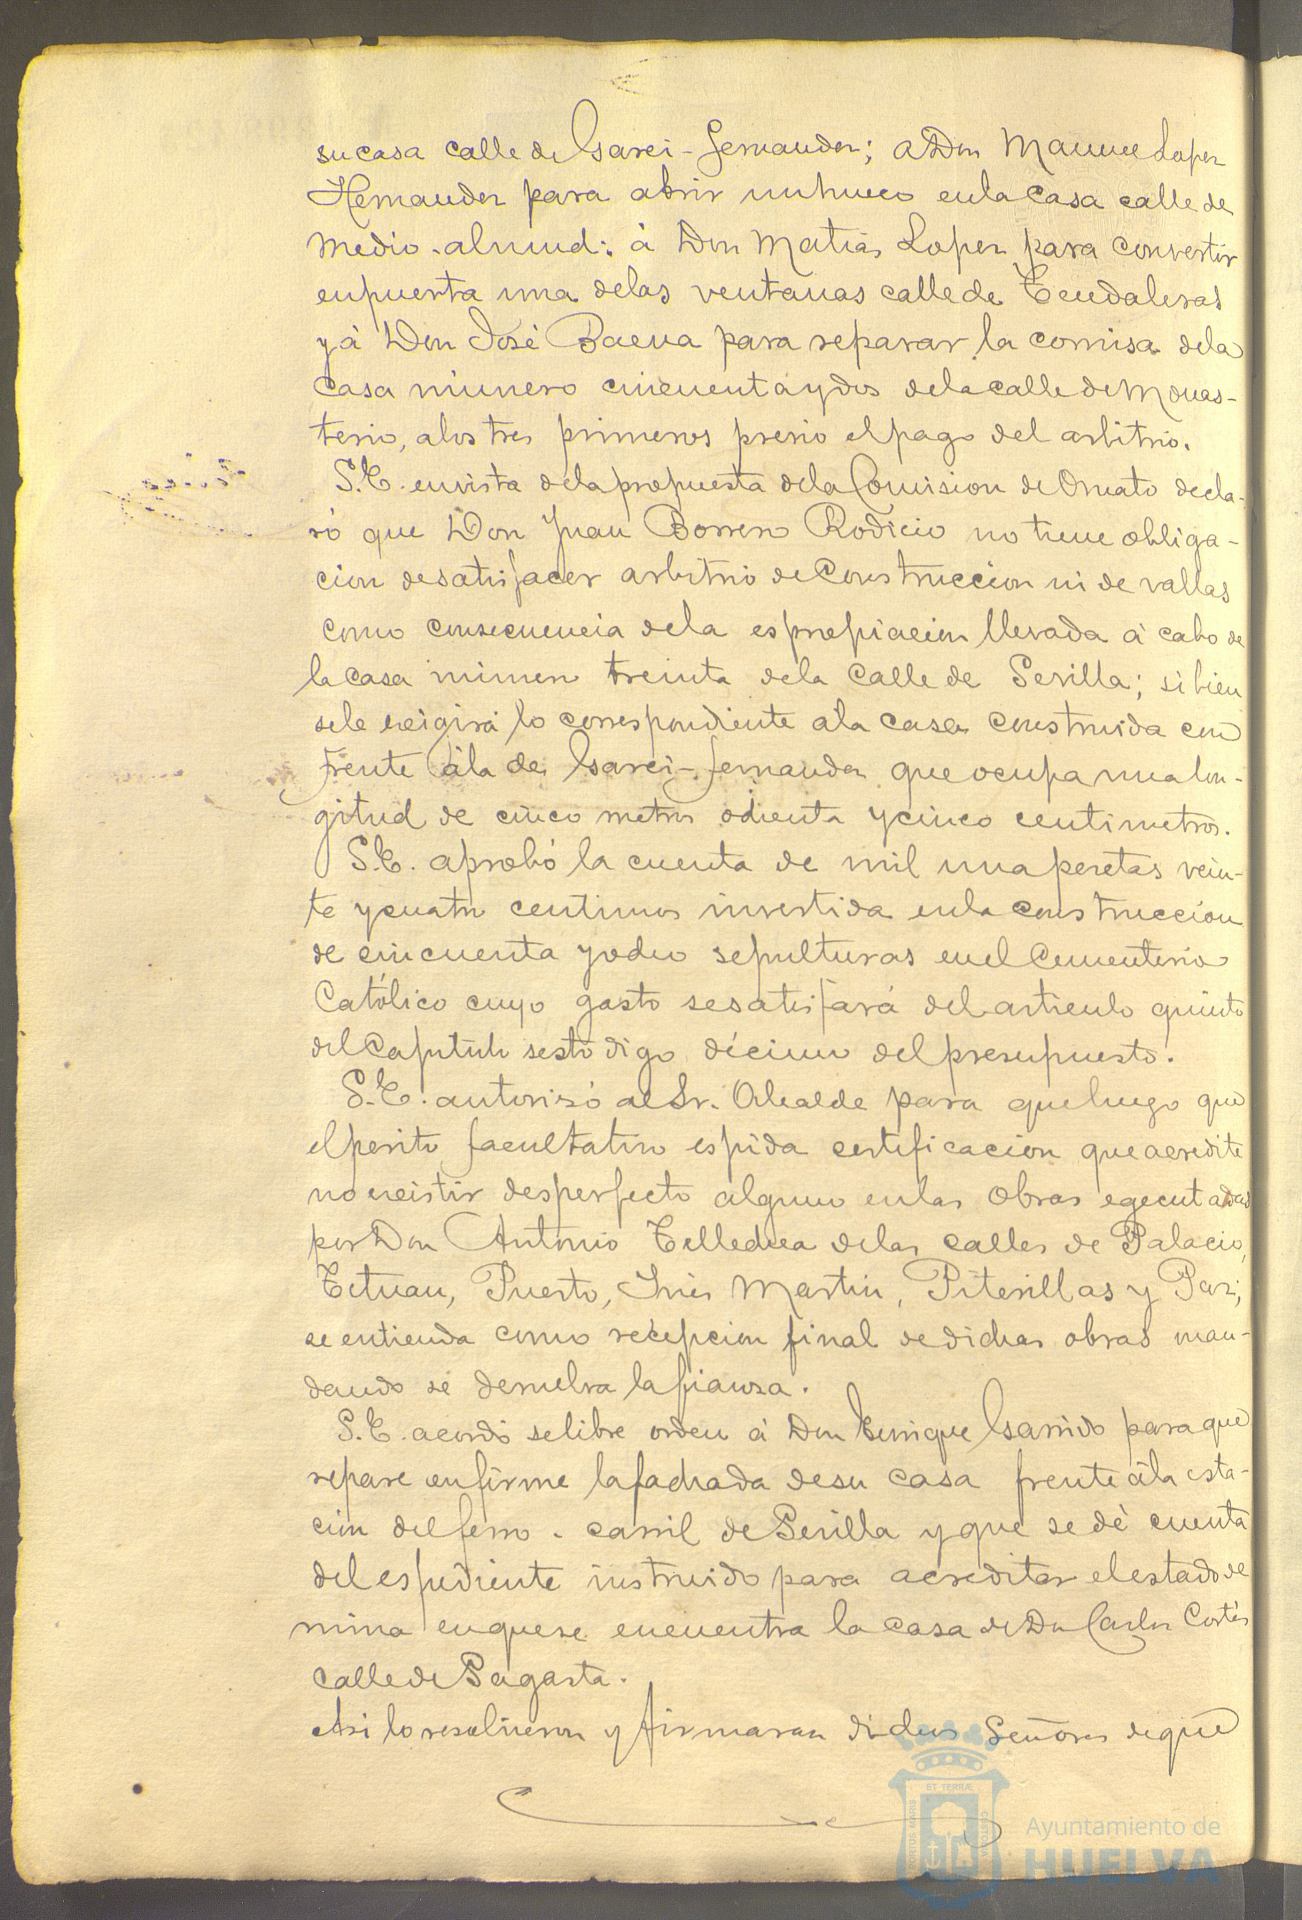 su casa calle de Garci-Fernandez; a Don Manuel Lopez
Hernandez para abrir un hueco en la casa calle de
medio-almud; á Don Matias Lopez para convertir
en puerta una de las ventanas calle de Tendaleras
y á Don José Baena para reparar la cornisa de la
casa número cincuenta y dos de la calle de Monas-
terio, a los tres primeros previo el pago del arbitrio.
S.E. en vista de la propuesta de la Comision de Ornato decla-
ró que Don Juan Borrero Rodicio no tiene obliga-
cion de satisfacer arbitrio de construccion ni de vallas
como consecuencia de la espropiacion llevada á cabo de
la casa número treinta de la calle de Sevilla; si bien
se le exigirá lo correspondiente a la casa construida con
frente á la de Garci-Fernandez que ocupa una lon-
gitud de cinco metros ochenta y cinco centimetros.
S.E. aprobó la cuenta de mil una pesetas vein-
te y cuatro centimos invertida en la construccion
de cincuenta y ocho sepulturas en el Cementerio
Católico cuyo gasto se satisfará del articulo quinto
del Capitulo sesto digo décimo del presupuesto.
S.E. autorizó al Sr. Alcalde para que luego que
el perito facultativo espida certificacion que acredite
no existir desperfecto alguno en las obras egecutadas
por Don Antonio Tellechea de las calles de Palacio,
Tetuan, Puerto, Inés Martin, Piterillas y Paz,
se entienda como recepcion final de dichas obras man-
dando se devuelva la fianza.
S.E. acordó se libre orden á Don Enrique Garrido para que
repare en firme la fachada de su casa frente á la esta-
cion del ferro-carril de Sevilla y que se dé cuenta
del espediente instruido para acreditar el estado de
ruina en que se encuentra la casa de Dn Carlos Cortés
calle de Sagasta.
Asi lo resolvieron y firmaran dichos Señores de que
ET TERRÆ
PORTUS MARIS
CUSTODIA
Ayuntamiento de
HUELVA